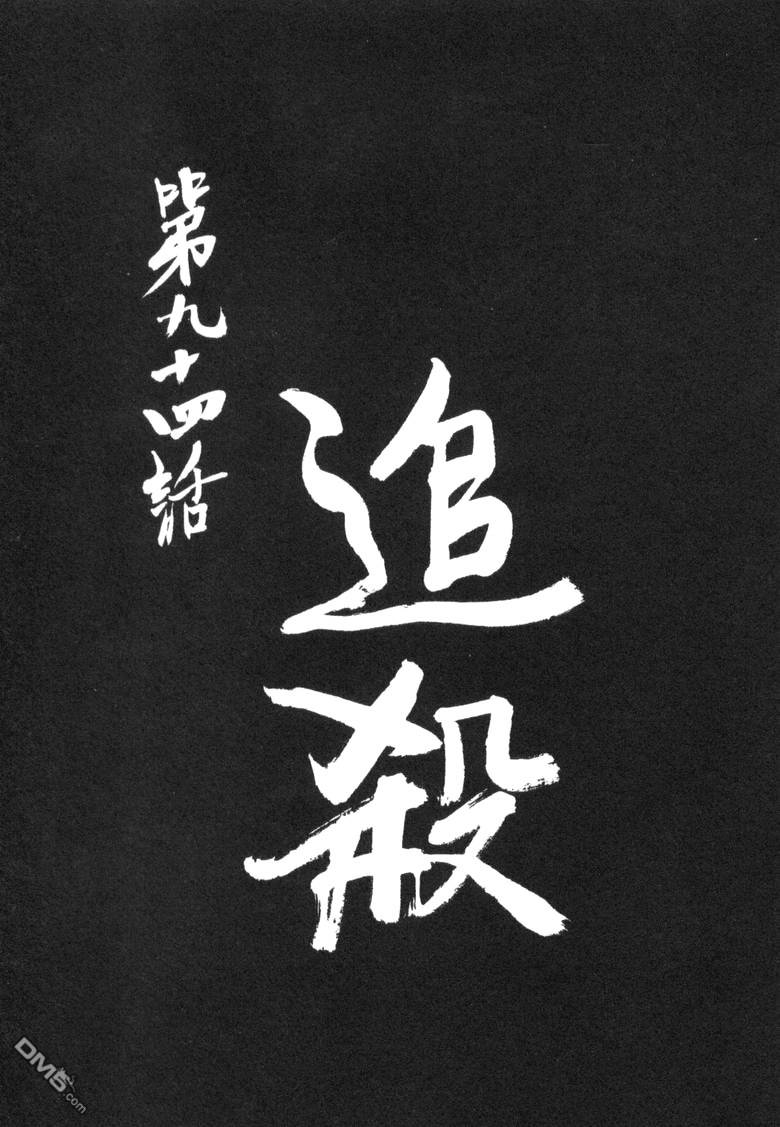 第九十四話
追殺
DM5.com